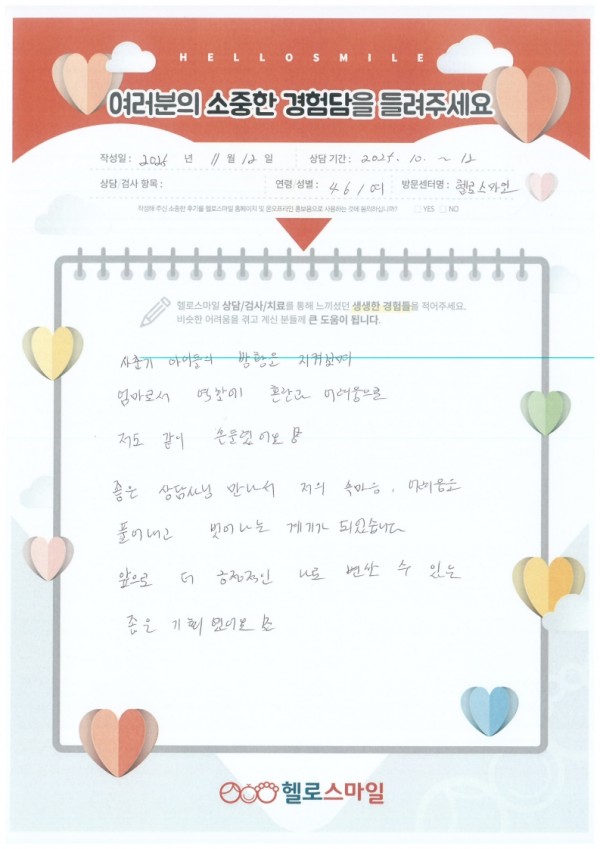 HELLOSMILE
여러분의 소중한 경험담을 들려주세요
작성일 : 2025 년 11 월 12 일 상담 기간 : 2025. 10. ~ 12
상담/검사 항목 : 연령/성별 : 46 / 여 방문센터명 : 헬로스마일
작성해 주신 소중한 후기를 헬로스마일 홈페이지 및 온오프라인 홍보용으로 사용하는 것에 동의하십니까? □ YES □ NO
헬로스마일 상담/검사/치료를 통해 느끼셨던 생생한 경험들을 적어주세요.
비슷한 어려움을 겪고 계신 분들께 큰 도움이 됩니다.
사춘기 아이들의 방황을 지켜보며
엄마로서 역할에 혼란과 어려움으로
저도 같이
좋은 상담사님 만나서 저의 속마음, 어려움을
풀어내고 벗어나는 계기가 되었습니다
앞으로 더 긍정적인 나로 변할 수 있는
좋은 기회
헬로스마일